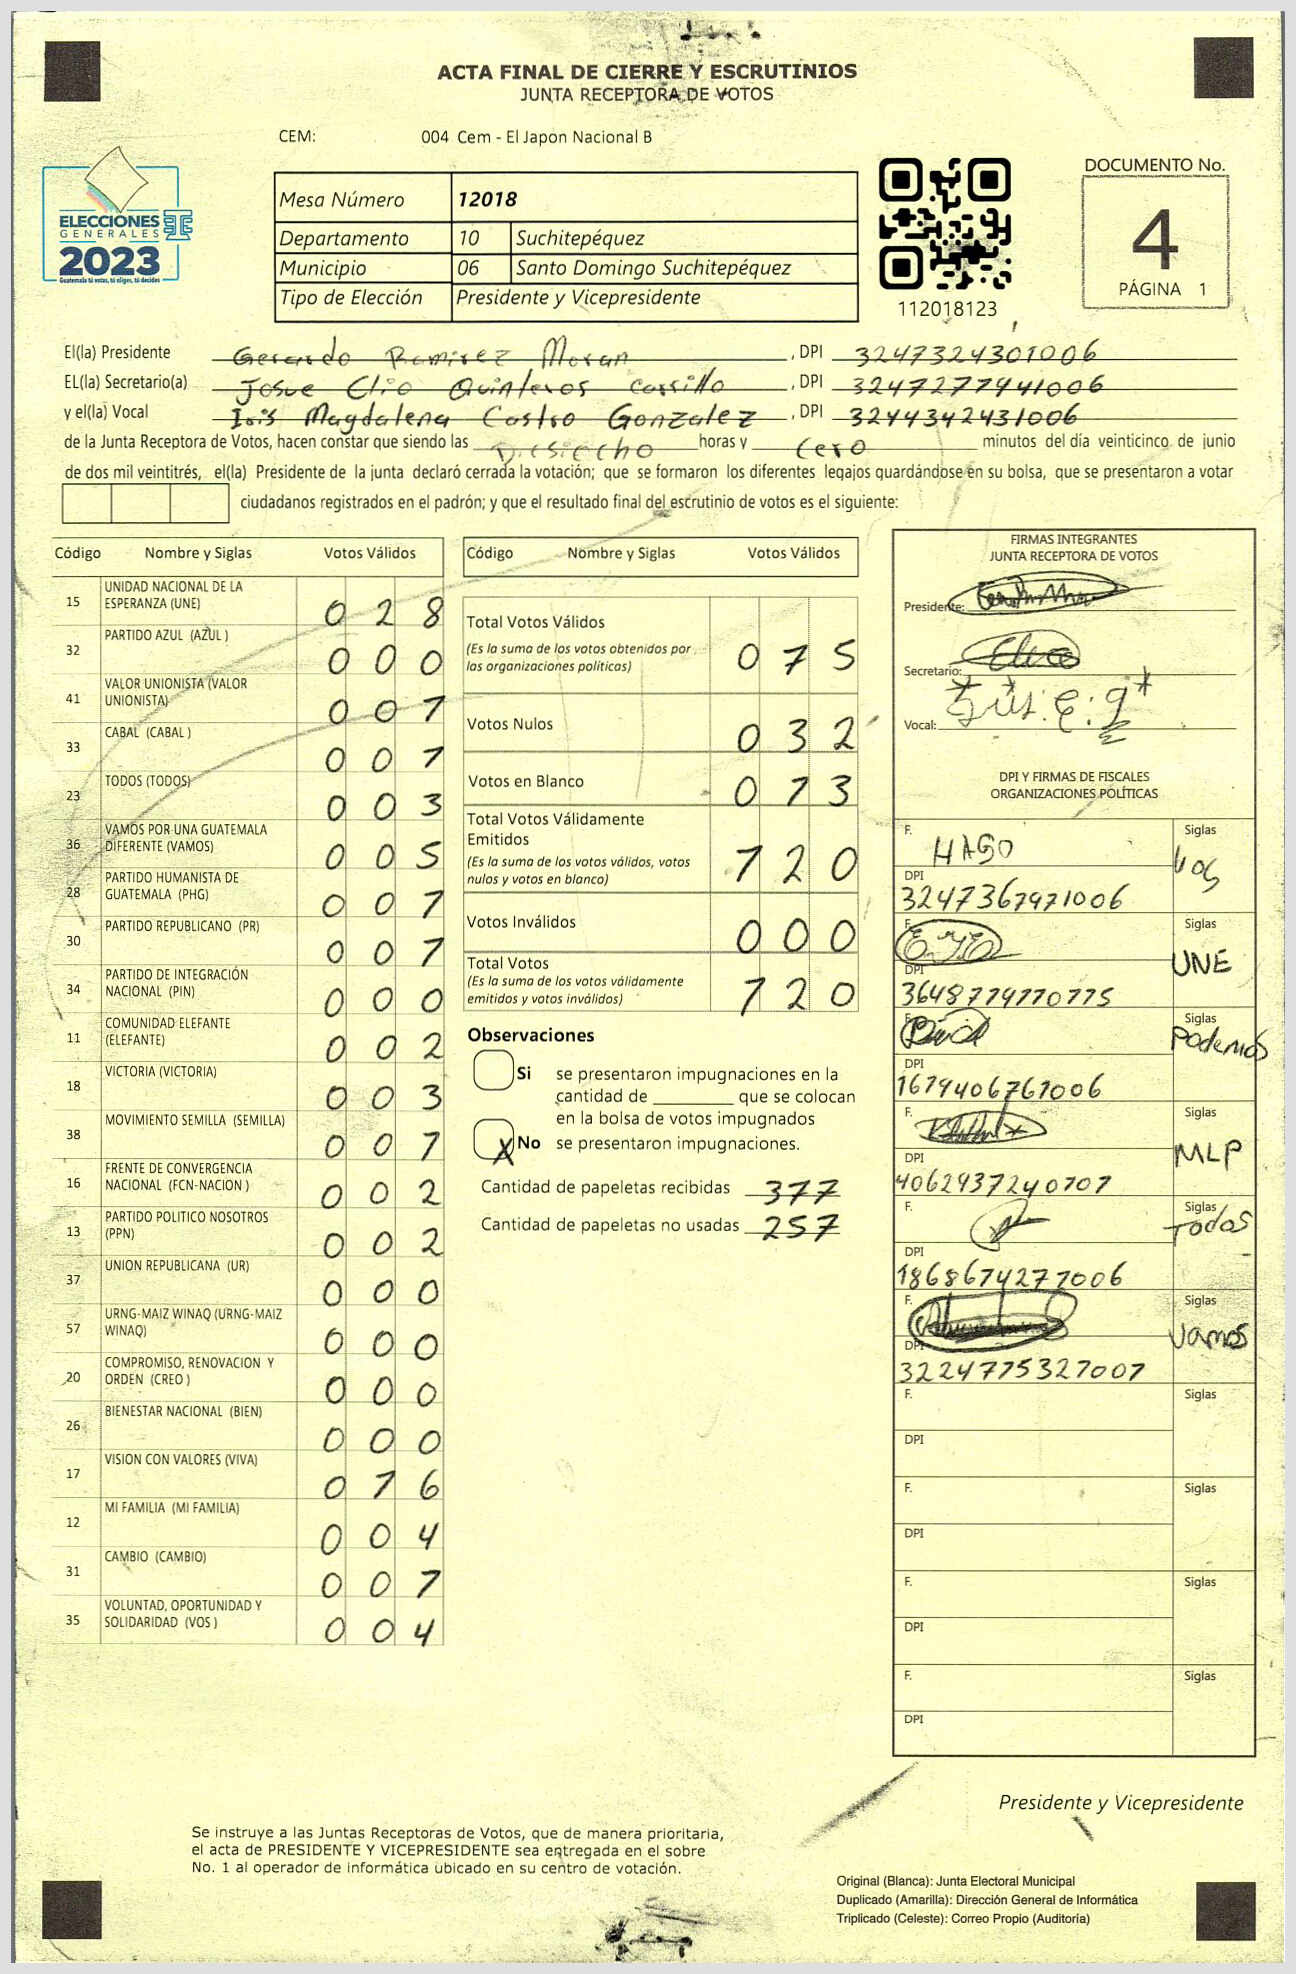 ACTA FINAL DE CIERRE Y ESCRUTINIOS
JUNTA RECEPTORA DE VOTOS
CEM: 004 Cem - El Japon Nacional B
ELECCIONES
GENERALES
2023
Guatemala tú votas, tú eliges, tú decides
Mesa Número 12018
Departamento 10 Suchitepéquez
Municipio 06 Santo Domingo Suchitepéquez
Tipo de Elección Presidente y Vicepresidente
112018123
DOCUMENTO No.
4
PÁGINA 1
El(la) Presidente Gerardo Ramirez Moran , DPI 3247324301006
EL(la) Secretario(a) Josue Elio Quinteros Carrillo , DPI 3247277941006
y el(la) Vocal Iris Magdalena Castro Gonzalez , DPI 3244342431006
de la Junta Receptora de Votos, hacen constar que siendo las Disiecho horas y cero minutos del día veinticinco de junio
de dos mil veintitrés, el(la) Presidente de la junta declaró cerrada la votación; que se formaron los diferentes legajos guardándose en su bolsa, que se presentaron a votar
ciudadanos registrados en el padrón; y que el resultado final del escrutinio de votos es el siguiente:
Código Nombre y Siglas Votos Válidos
15 UNIDAD NACIONAL DE LA
ESPERANZA (UNE) 0 2 8
32 PARTIDO AZUL (AZUL ) 0 0 0
41 VALOR UNIONISTA (VALOR
UNIONISTA) 0 0 1
33 CABAL (CABAL ) 0 0 1
23 TODOS (TODOS) 0 0 3
36 VAMOS POR UNA GUATEMALA
DIFERENTE (VAMOS) 0 0 5
28 PARTIDO HUMANISTA DE
GUATEMALA (PHG) 0 0 1
30 PARTIDO REPUBLICANO (PR) 0 0 1
34 PARTIDO DE INTEGRACIÓN
NACIONAL (PIN) 0 0 0
11 COMUNIDAD ELEFANTE
(ELEFANTE) 0 0 2
18 VICTORIA (VICTORIA) 0 0 3
38 MOVIMIENTO SEMILLA (SEMILLA) 0 0 1
16 FRENTE DE CONVERGENCIA
NACIONAL (FCN-NACION ) 0 0 2
13 PARTIDO POLITICO NOSOTROS
(PPN) 0 0 2
37 UNION REPUBLICANA (UR) 0 0 0
57 URNG-MAIZ WINAQ (URNG-MAIZ
WINAQ) 0 0 0
20 COMPROMISO, RENOVACION Y
ORDEN (CREO ) 0 0 0
26 BIENESTAR NACIONAL (BIEN) 0 0 0
17 VISION CON VALORES (VIVA) 0 1 6
12 MI FAMILIA (MI FAMILIA) 0 0 4
31 CAMBIO (CAMBIO) 0 0 1
35 VOLUNTAD, OPORTUNIDAD Y
SOLIDARIDAD (VOS ) 0 0 4
Código Nombre y Siglas Votos Válidos
Total Votos Válidos
(Es la suma de los votos obtenidos por
las organizaciones políticas) 0 7 5
Votos Nulos 0 3 2
Votos en Blanco 0 1 3
Total Votos Válidamente
Emitidos
(Es la suma de los votos válidos, votos
nulos y votos en blanco) 1 2 0
Votos Inválidos 0 0 0
Total Votos
(Es la suma de los votos válidamente
emitidos y votos inválidos) 1 2 0
Observaciones
Si se presentaron impugnaciones en la
cantidad de ________ que se colocan
en la bolsa de votos impugnados
X No se presentaron impugnaciones.
Cantidad de papeletas recibidas 377
Cantidad de papeletas no usadas 257
FIRMAS INTEGRANTES
JUNTA RECEPTORA DE VOTOS
Presidente:
Secretario:
Vocal:
DPI Y FIRMAS DE FISCALES
ORGANIZACIONES POLÍTICAS
F. HAGO Siglas VOS
DPI
F. Siglas UNE
DPI
F. Siglas Podemos
DPI 1619406161006
F. Siglas MLP
DPI
F. Siglas Todos
DPI 1868614271006
F. Siglas Vamos
DPI 3224115321001
F. Siglas
DPI
F. Siglas
DPI
F. Siglas
DPI
F. Siglas
DPI
Presidente y Vicepresidente
Se instruye a las Juntas Receptoras de Votos, que de manera prioritaria,
el acta de PRESIDENTE Y VICEPRESIDENTE sea entregada en el sobre
No. 1 al operador de informática ubicado en su centro de votación.
Original (Blanca): Junta Electoral Municipal
Duplicado (Amarilla): Dirección General de Informática
Triplicado (Celeste): Correo Propio (Auditoría)